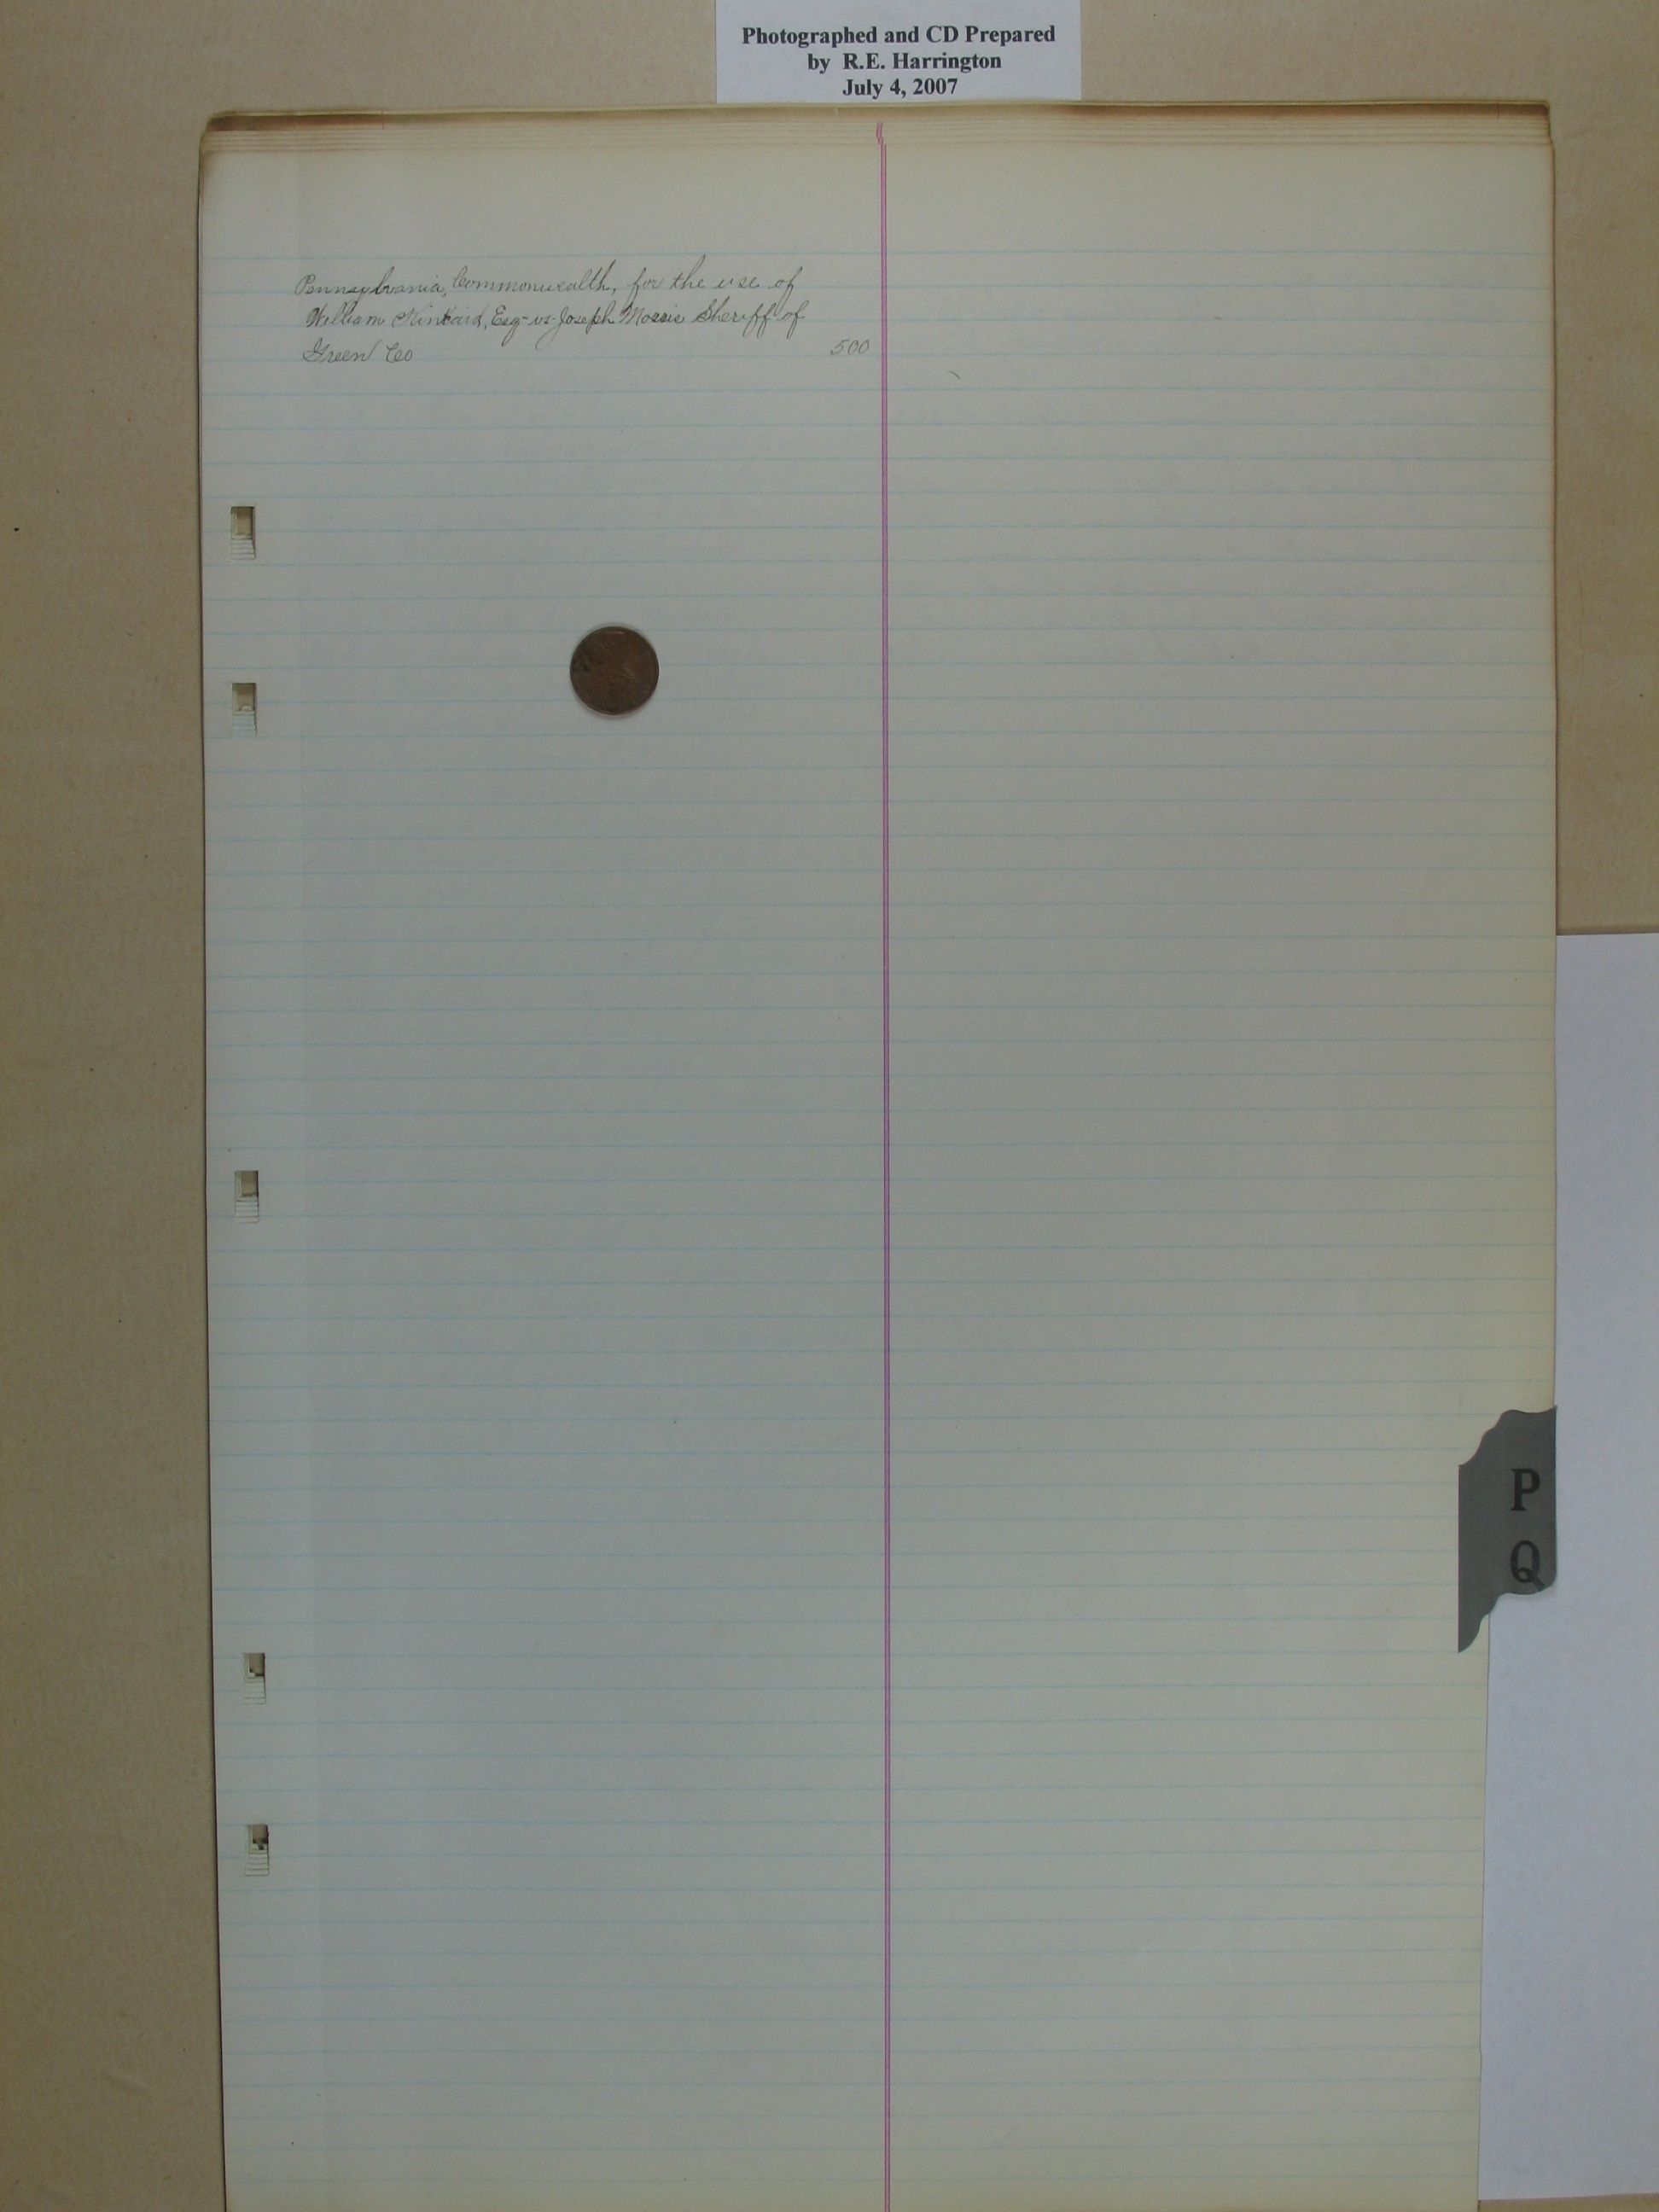 Photographed and CD Prepared
by R.E. Harrington
July 4, 2007
Pennsylvania, Commonwealth, for the use of
William Kinkaid, Esq-vs-Joseph Morris Sheriff of
Green Co 500
P
Q